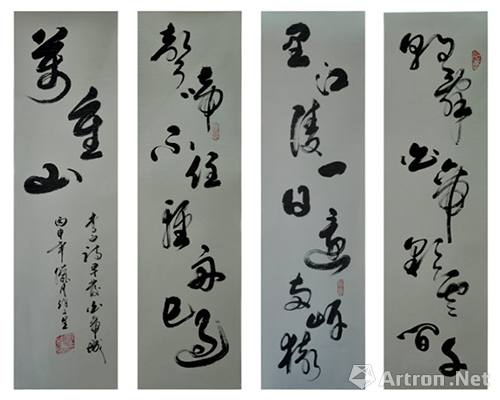 朝辭白帝彩雲間千
里江陵一日還兩岸猿
聲啼不住輕舟已過
萬重山
李白詩早發白帝城
丙申年
Artron.Net